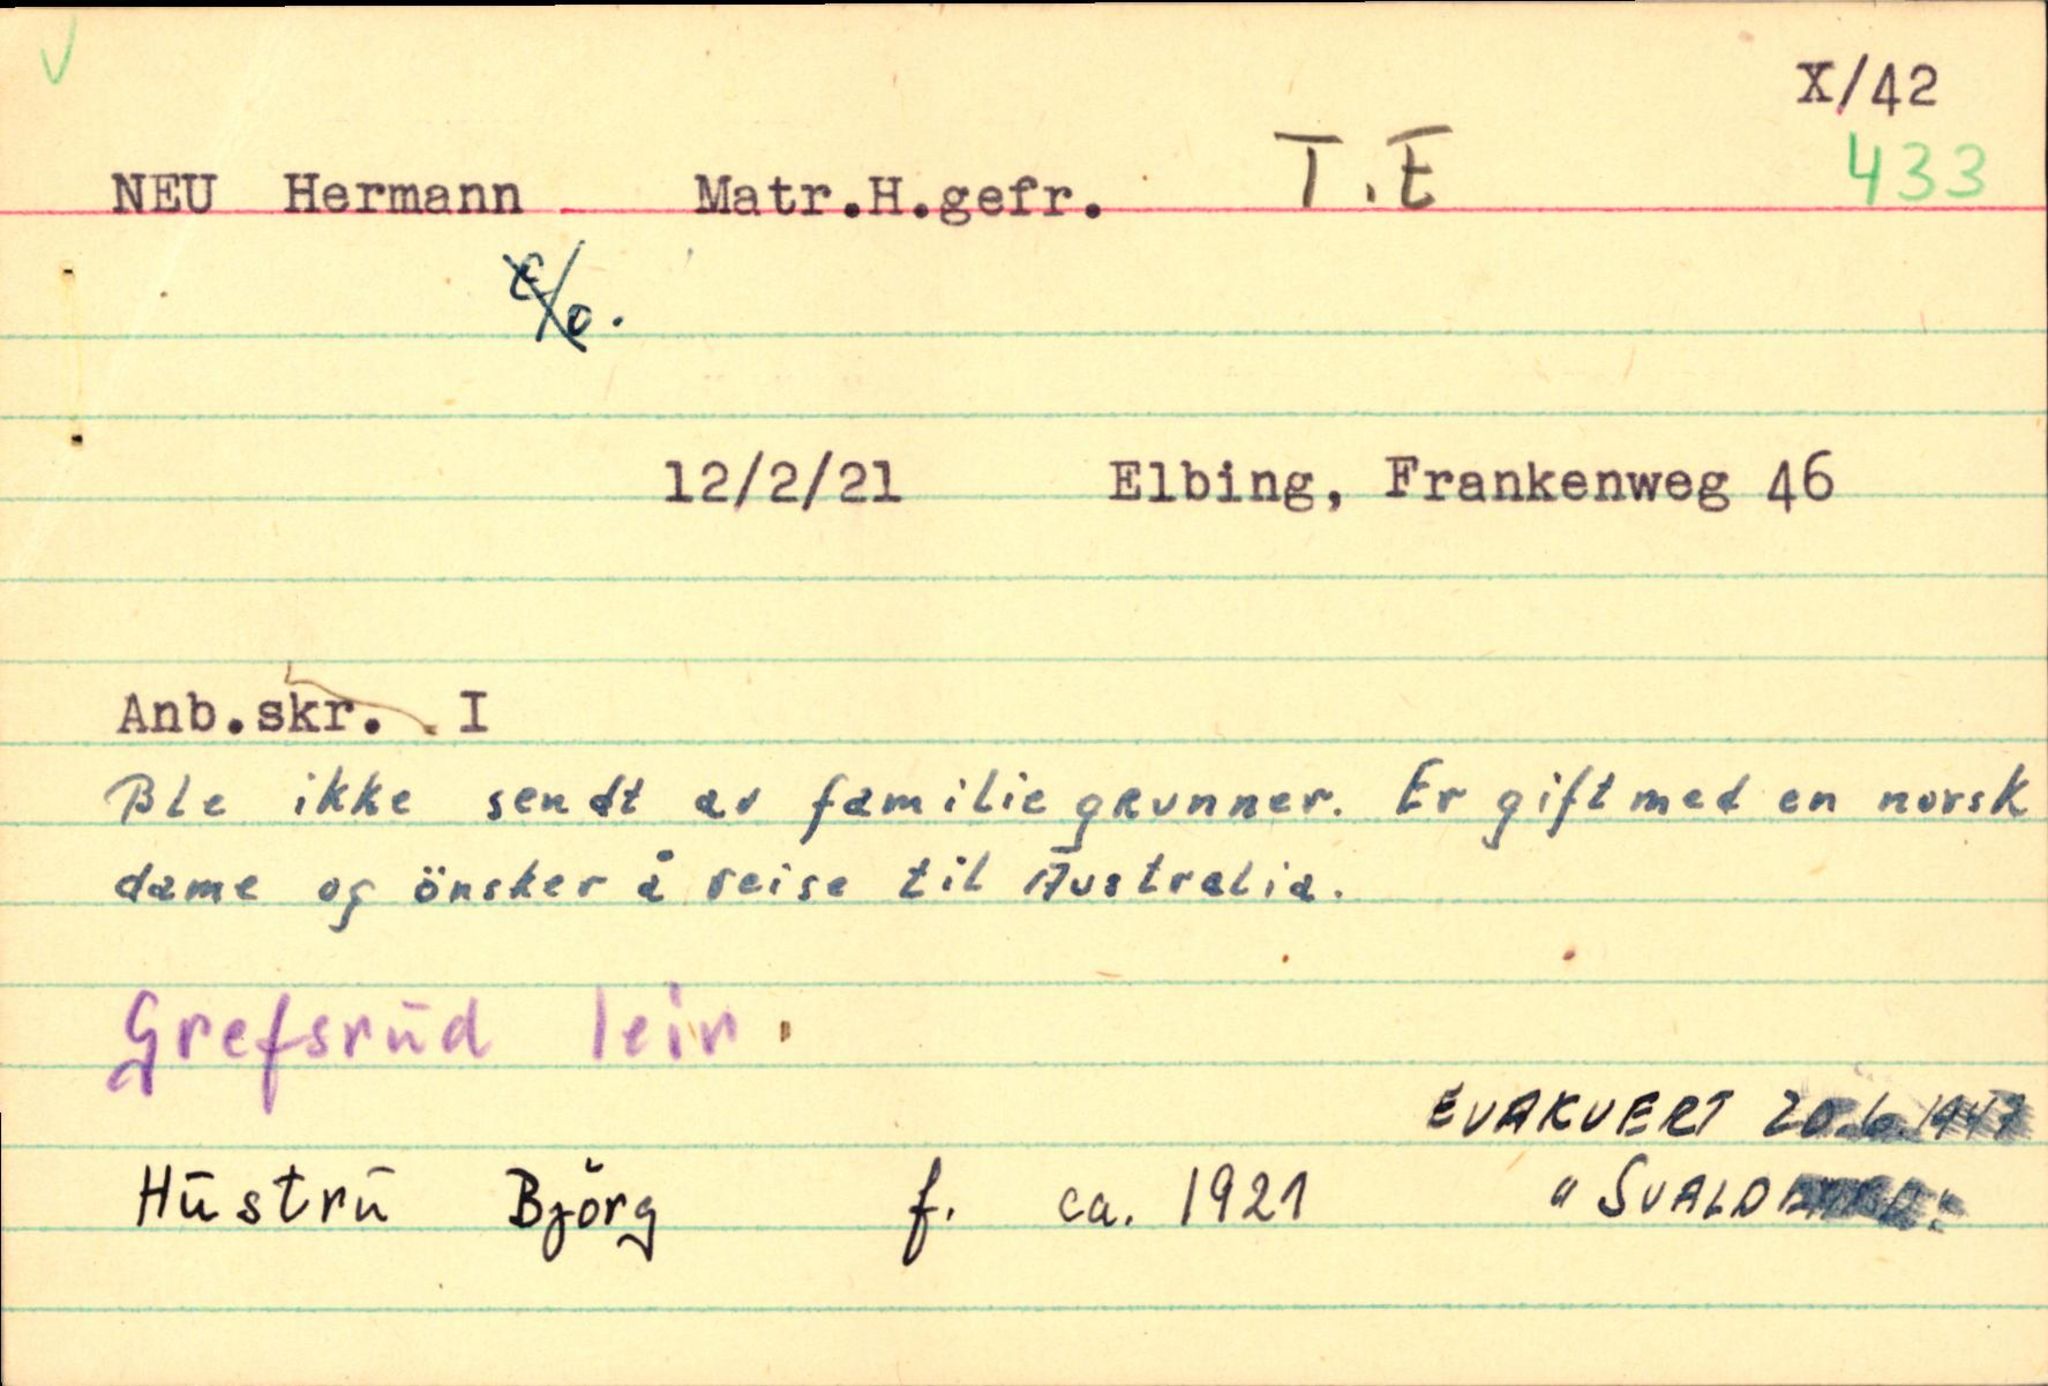 X/42
433
NEU Hermann Matr.H.gefr. T.E
c/o.
12/2/21 Elbing, Frankenweg 46
Anb.skr. I
Ble ikke sendt av familiegrunner. Er gift med en norsk
dame og önsker å reise til Australia.
Grefsrud leir
EVAKUERT 20.6.1947
Hustru Björg f. ca. 1921